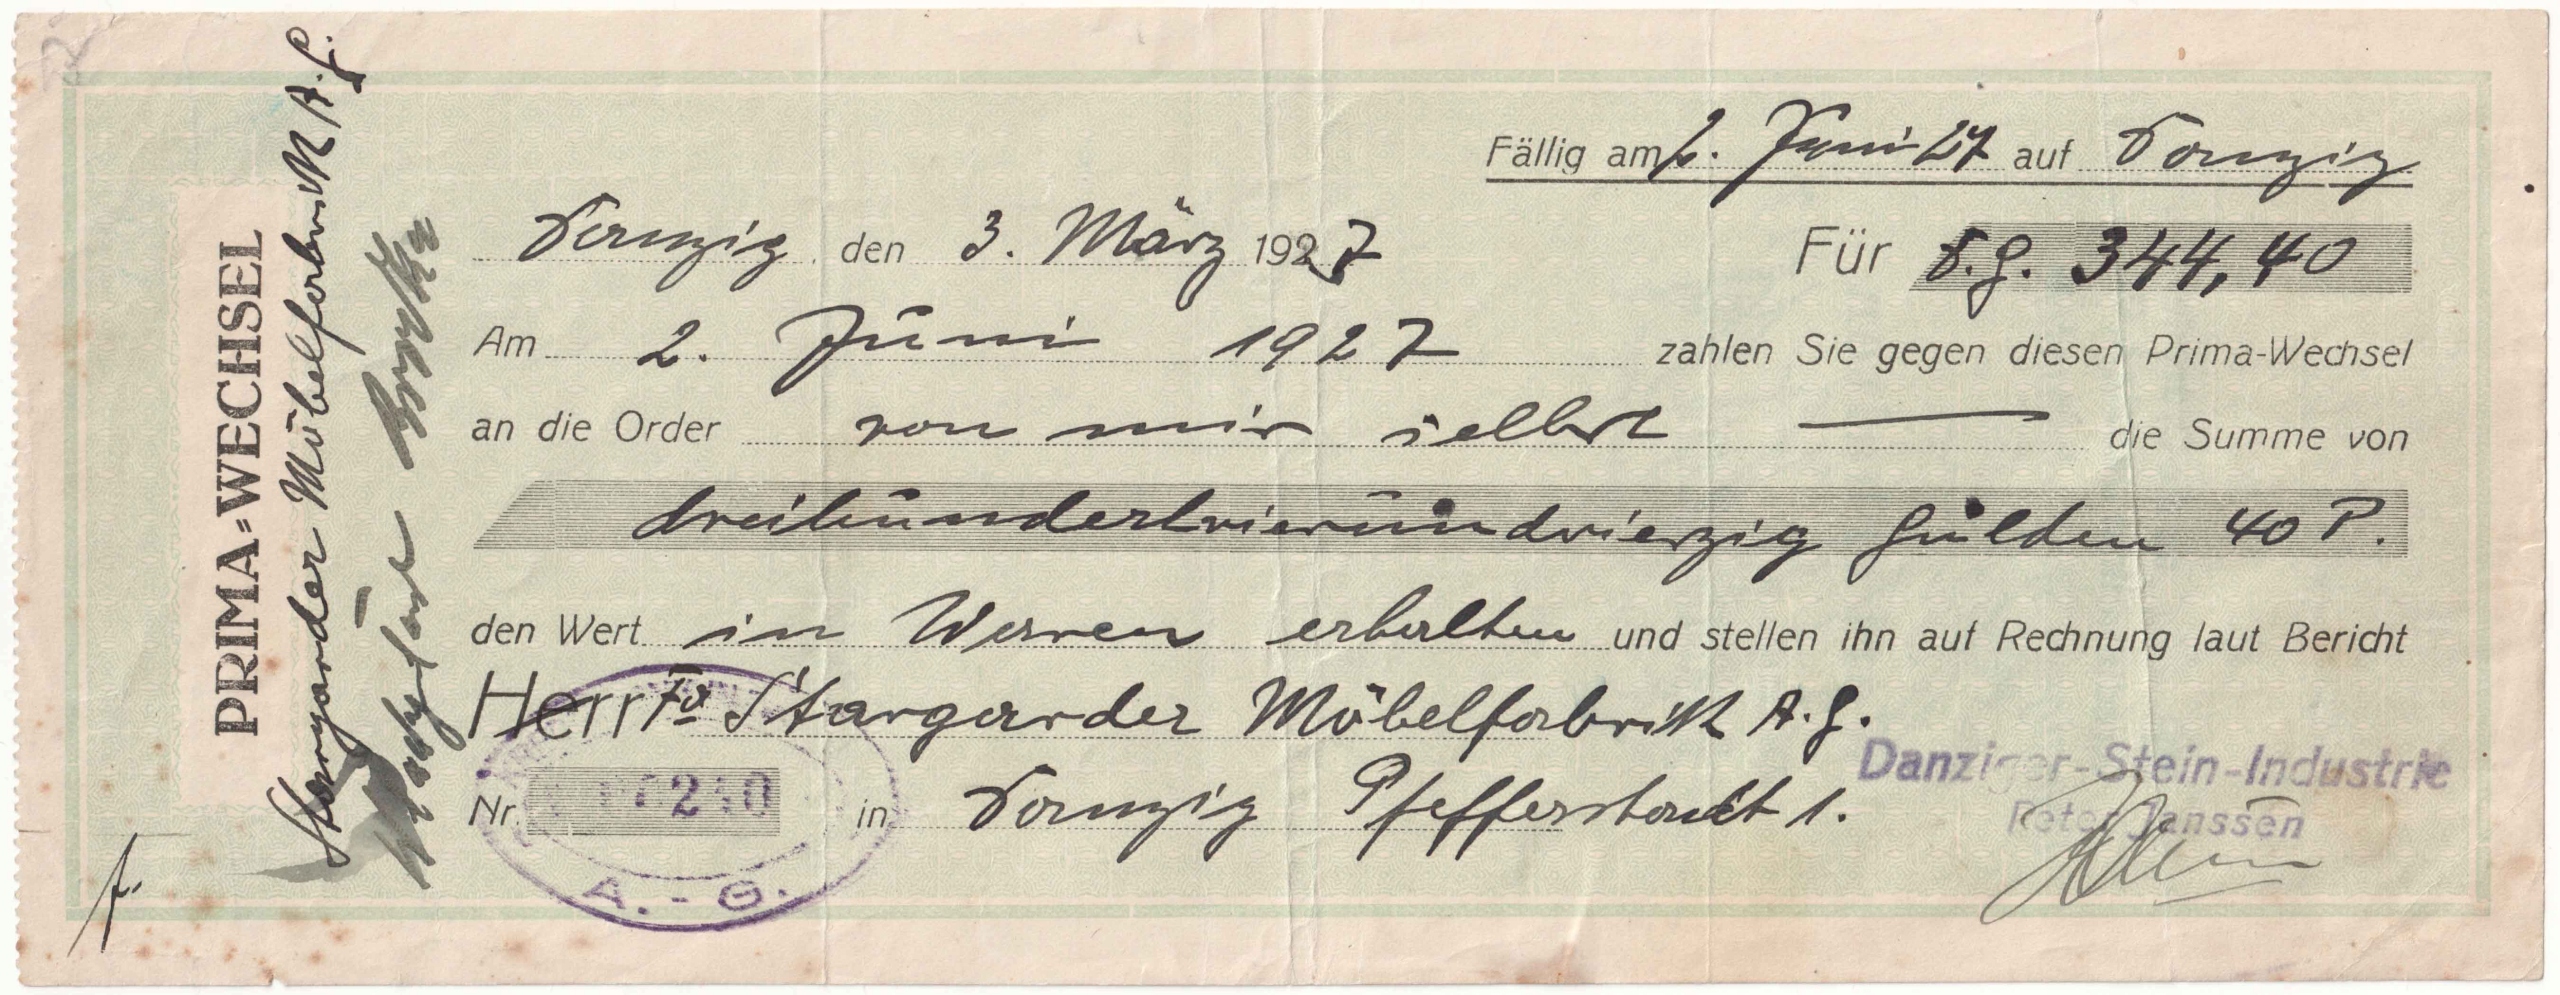 Fällig am 2. Juni 27 auf Danzig
Danzig, den 3. März 1927 Für D.G. 344,40
Am 2. Juni 1927 zahlen Sie gegen diesen Prima-Wechsel
an die Order von mir selbst die Summe von
dreihundertvierundvierzig Gulden 40 P.
den Wert in Waren erhalten und stellen ihn auf Rechnung laut Bericht
Herr Fa Stargarder Möbelfabrik A.G.
Nr. in Danzig Pfefferstadt 1.
A.-G.
Danziger-Stein-Industrie
Peter Janssen
PRIMA=WECHSEL
Stargarder Möbelfabrik A.G.